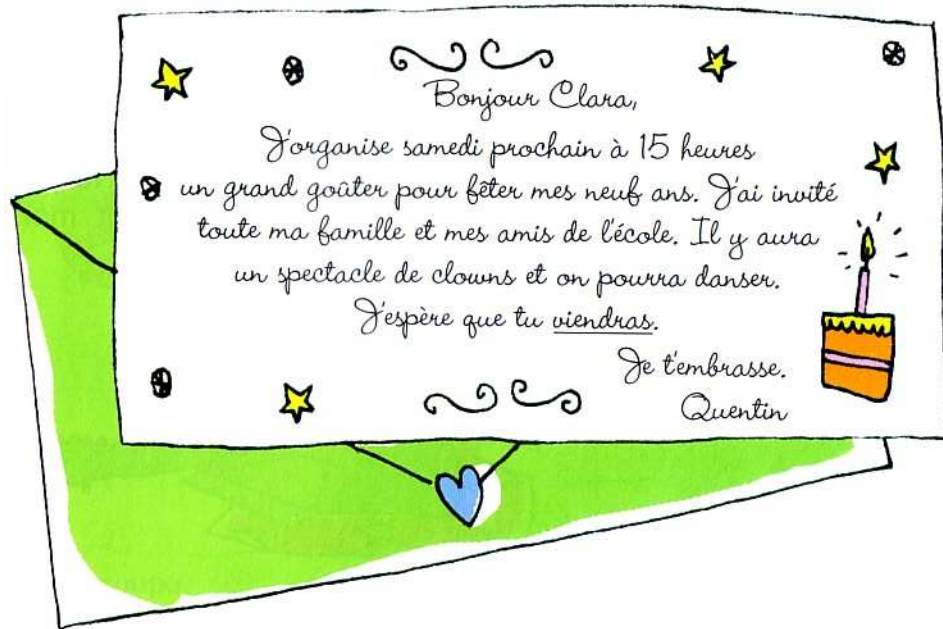 Bonjour Clara,
J'organise samedi prochain à 15 heures
un grand goûter pour fêter mes neuf ans. J'ai invité
toute ma famille et mes amis de l'école. Il y aura
un spectacle de clowns et on pourra danser.
J'espère que tu viendras.
Je t'embrasse.
Quentin